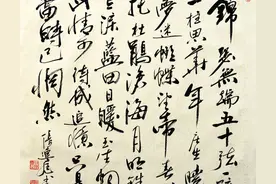 錦瑟無端五十弦一
弦一柱思華年庄生曉
夢迷蝴蝶望帝春
心托杜鵑滄海月明珠
有淚藍田日暖玉生烟
此情可待成追憶只是
當時已惘然